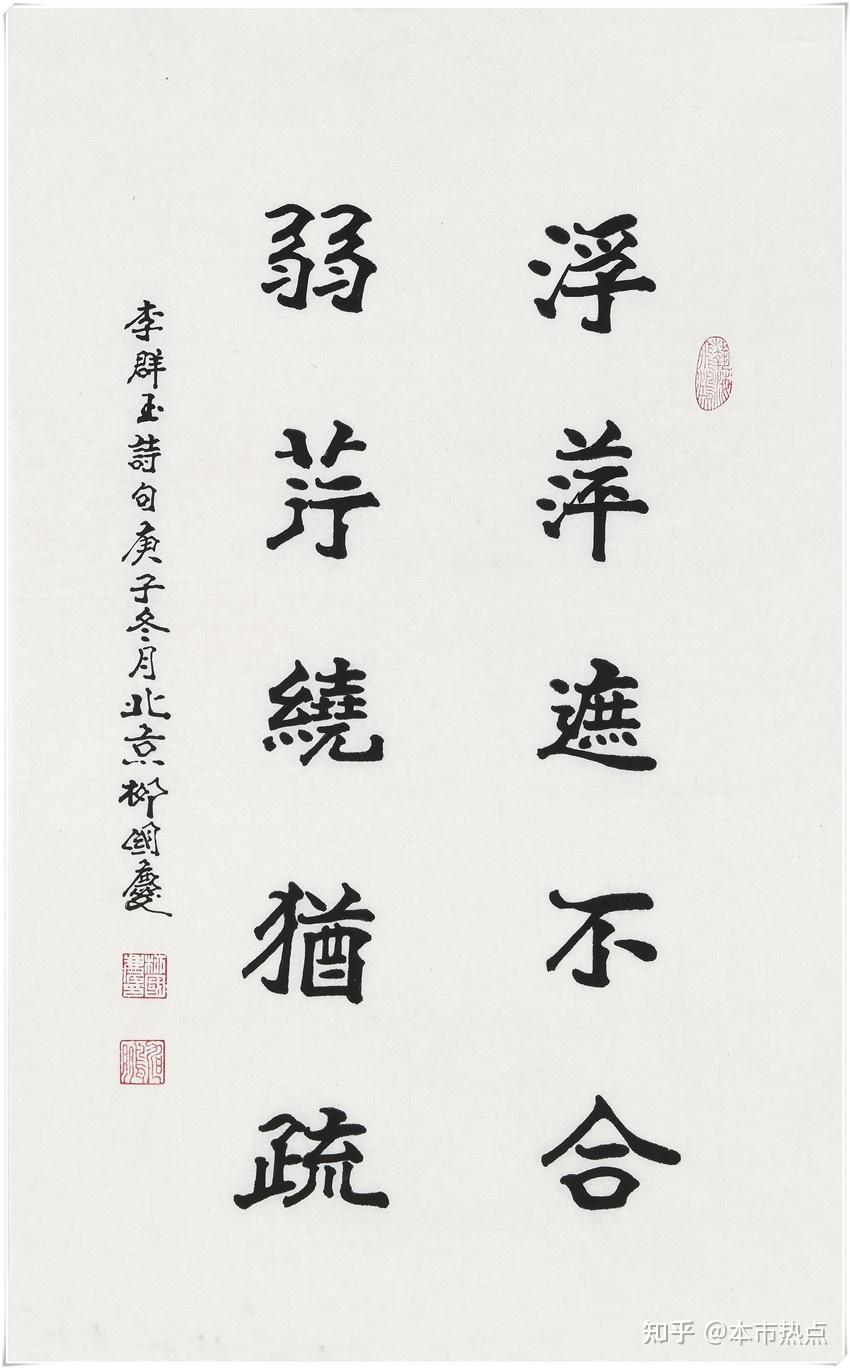 浮萍遮不合
弱荇繞猶疏
李群玉詩句庚子冬月北京柳國慶
知乎 @本市热点